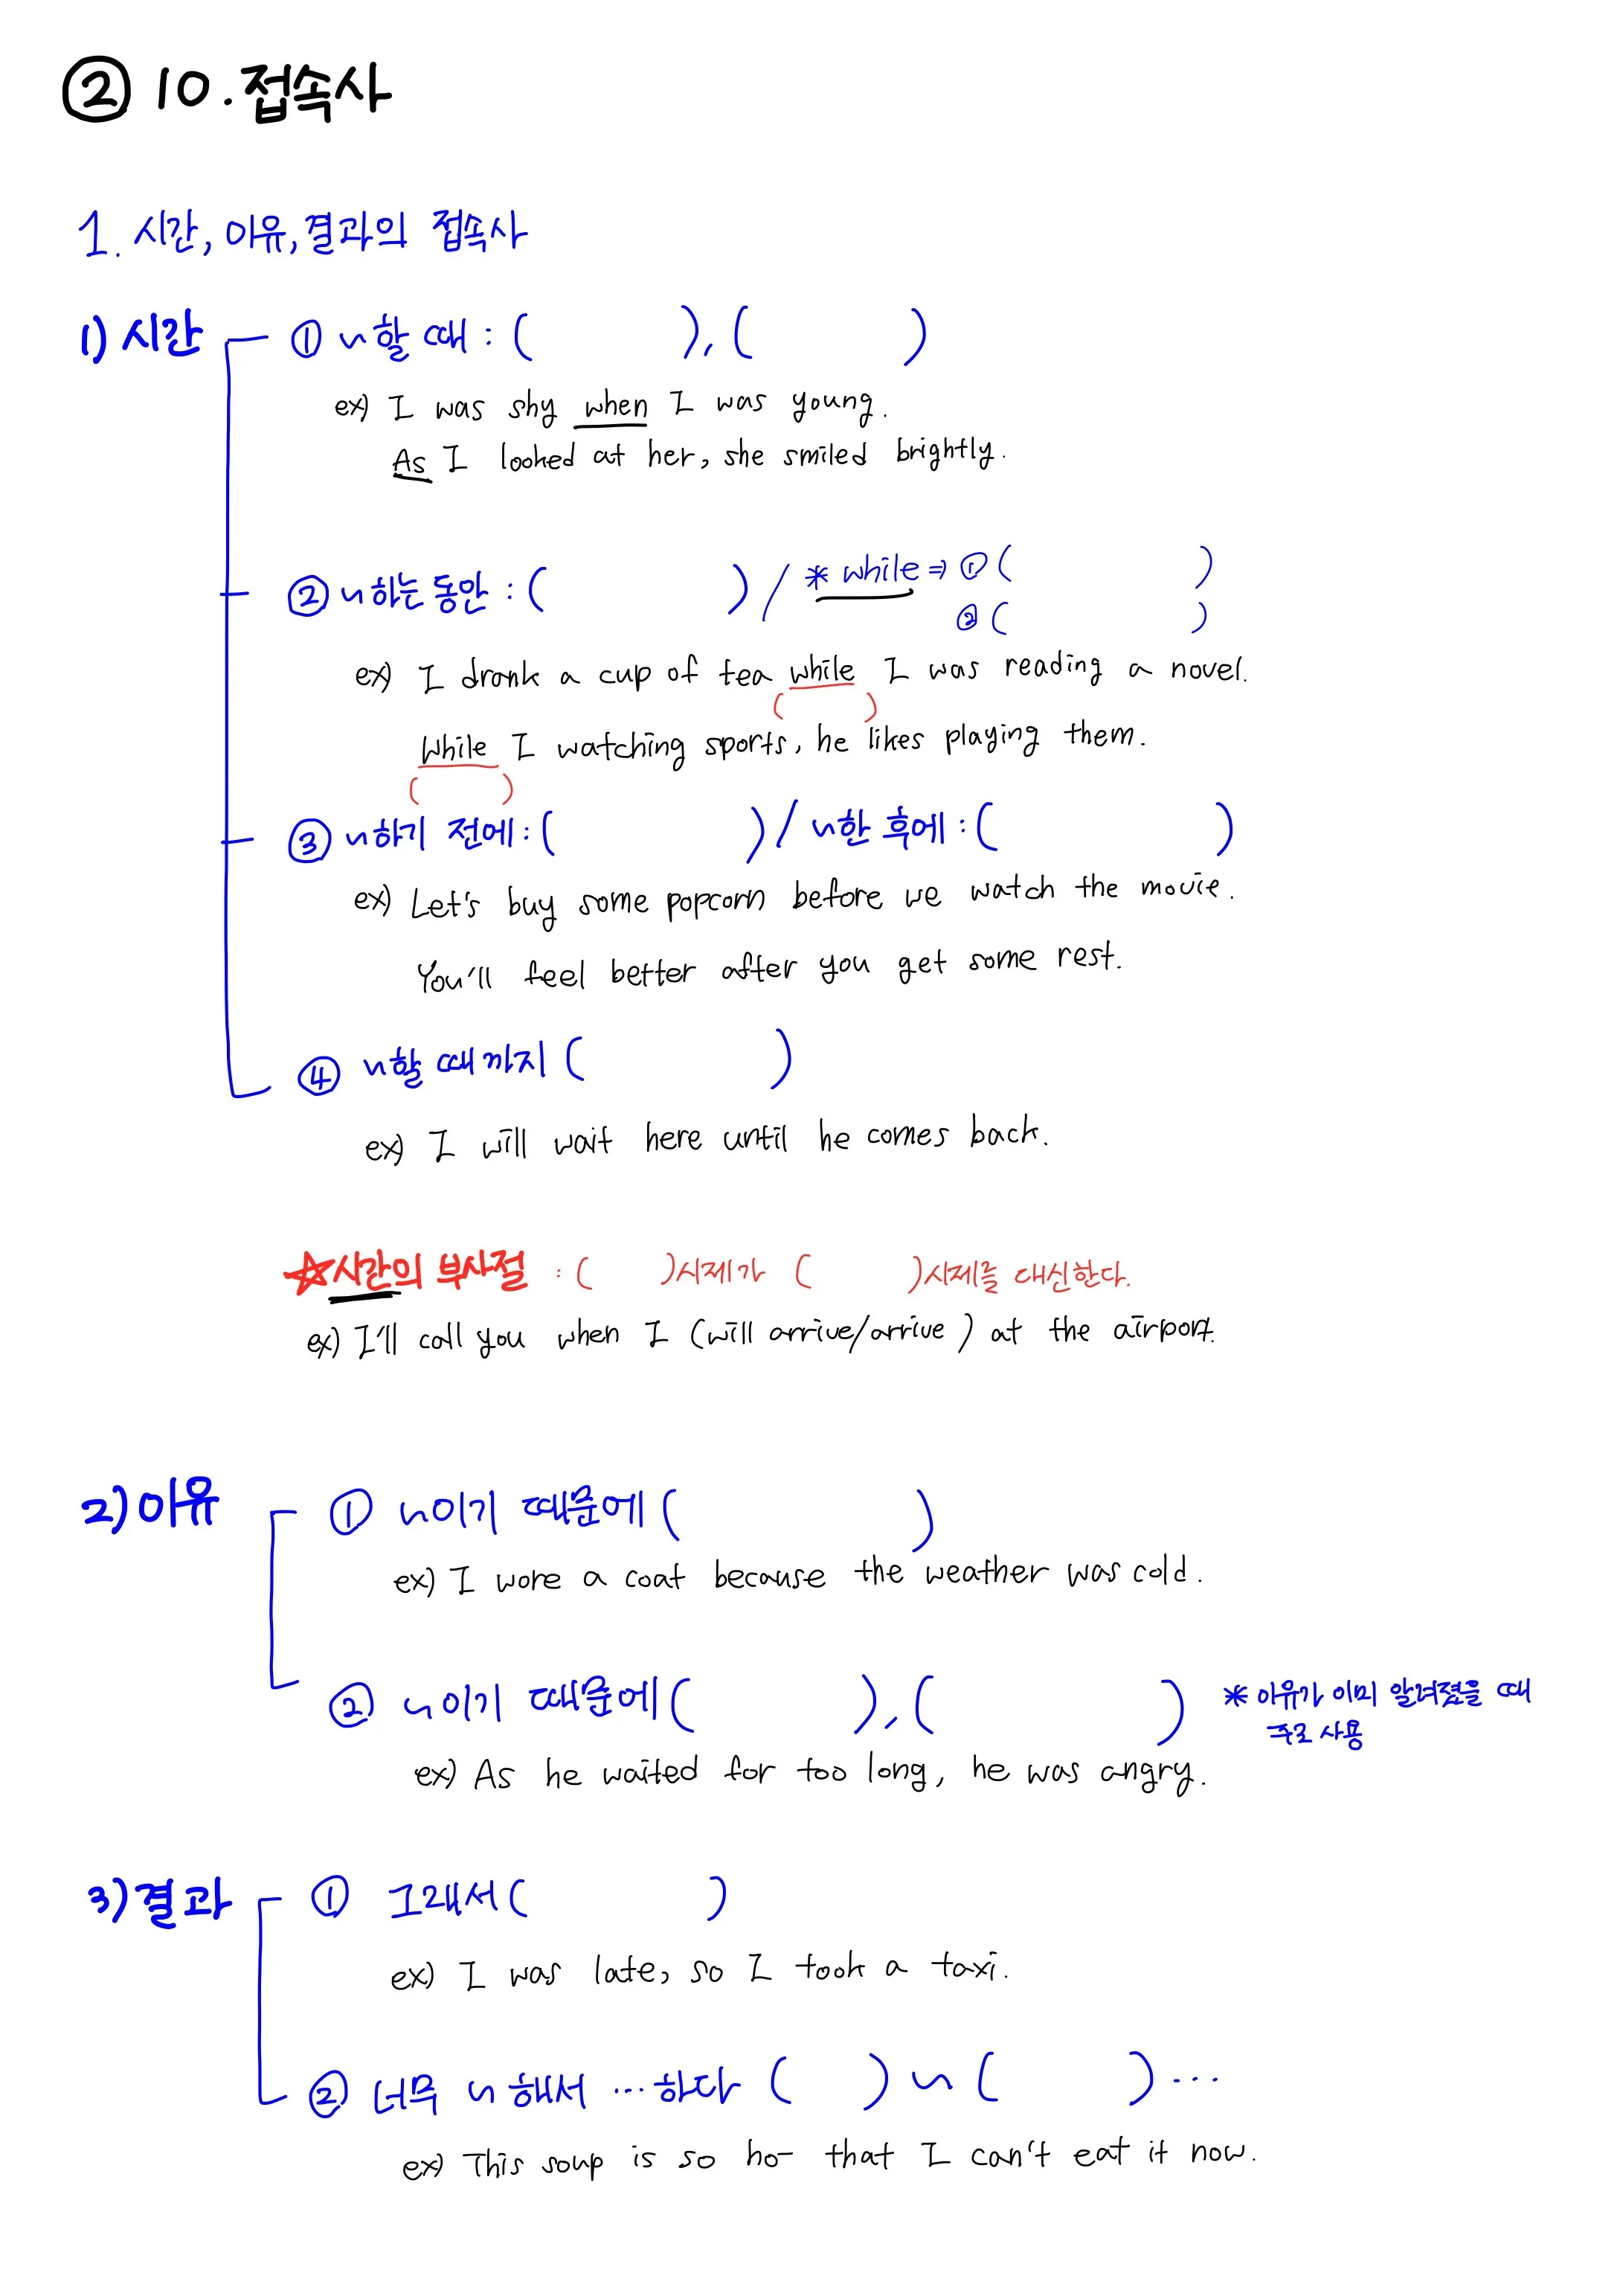 ② 10. 접속사
1. 시간, 이유, 결과의 접속사
1) 시간
① ~할 때 : (          ), (          )
ex) I was shy when I was young.
As I looked at her, she smiled brightly.
② ~하는 동안 : (          ) / * while ⇒ ① (          )
② (          )
ex) I drank a cup of tea while I was reading a novel.
(     )
While I watching sports, he likes playing them.
(     )
③ ~하기 전에 : (          ) / ~한 후에 : (          )
ex) Let's buy some popcorn before we watch the movie.
You'll feel better after you get some rest.
④ ~할 때까지 (          )
ex) I will wait here until he comes back.
☆시간의 부사절 : (     )시제가 (     )시제를 대신한다.
ex) I'll call you when I (will arrive/arrive) at the airport.
2) 이유
① ~이기 때문에 (          )
ex) I wore a coat because the weather was cold.
② ~이기 때문에 (          ), (          ) * 이유가 이미 알려졌을 때
주로 사용
ex) As he waited for too long, he was angry.
3) 결과
① 그래서 (          )
ex) I was late, so I took a taxi.
② 너무 ~해서 …하다 (     ) ~ (     ) …
ex) This soup is so ho- that I can't eat it now.